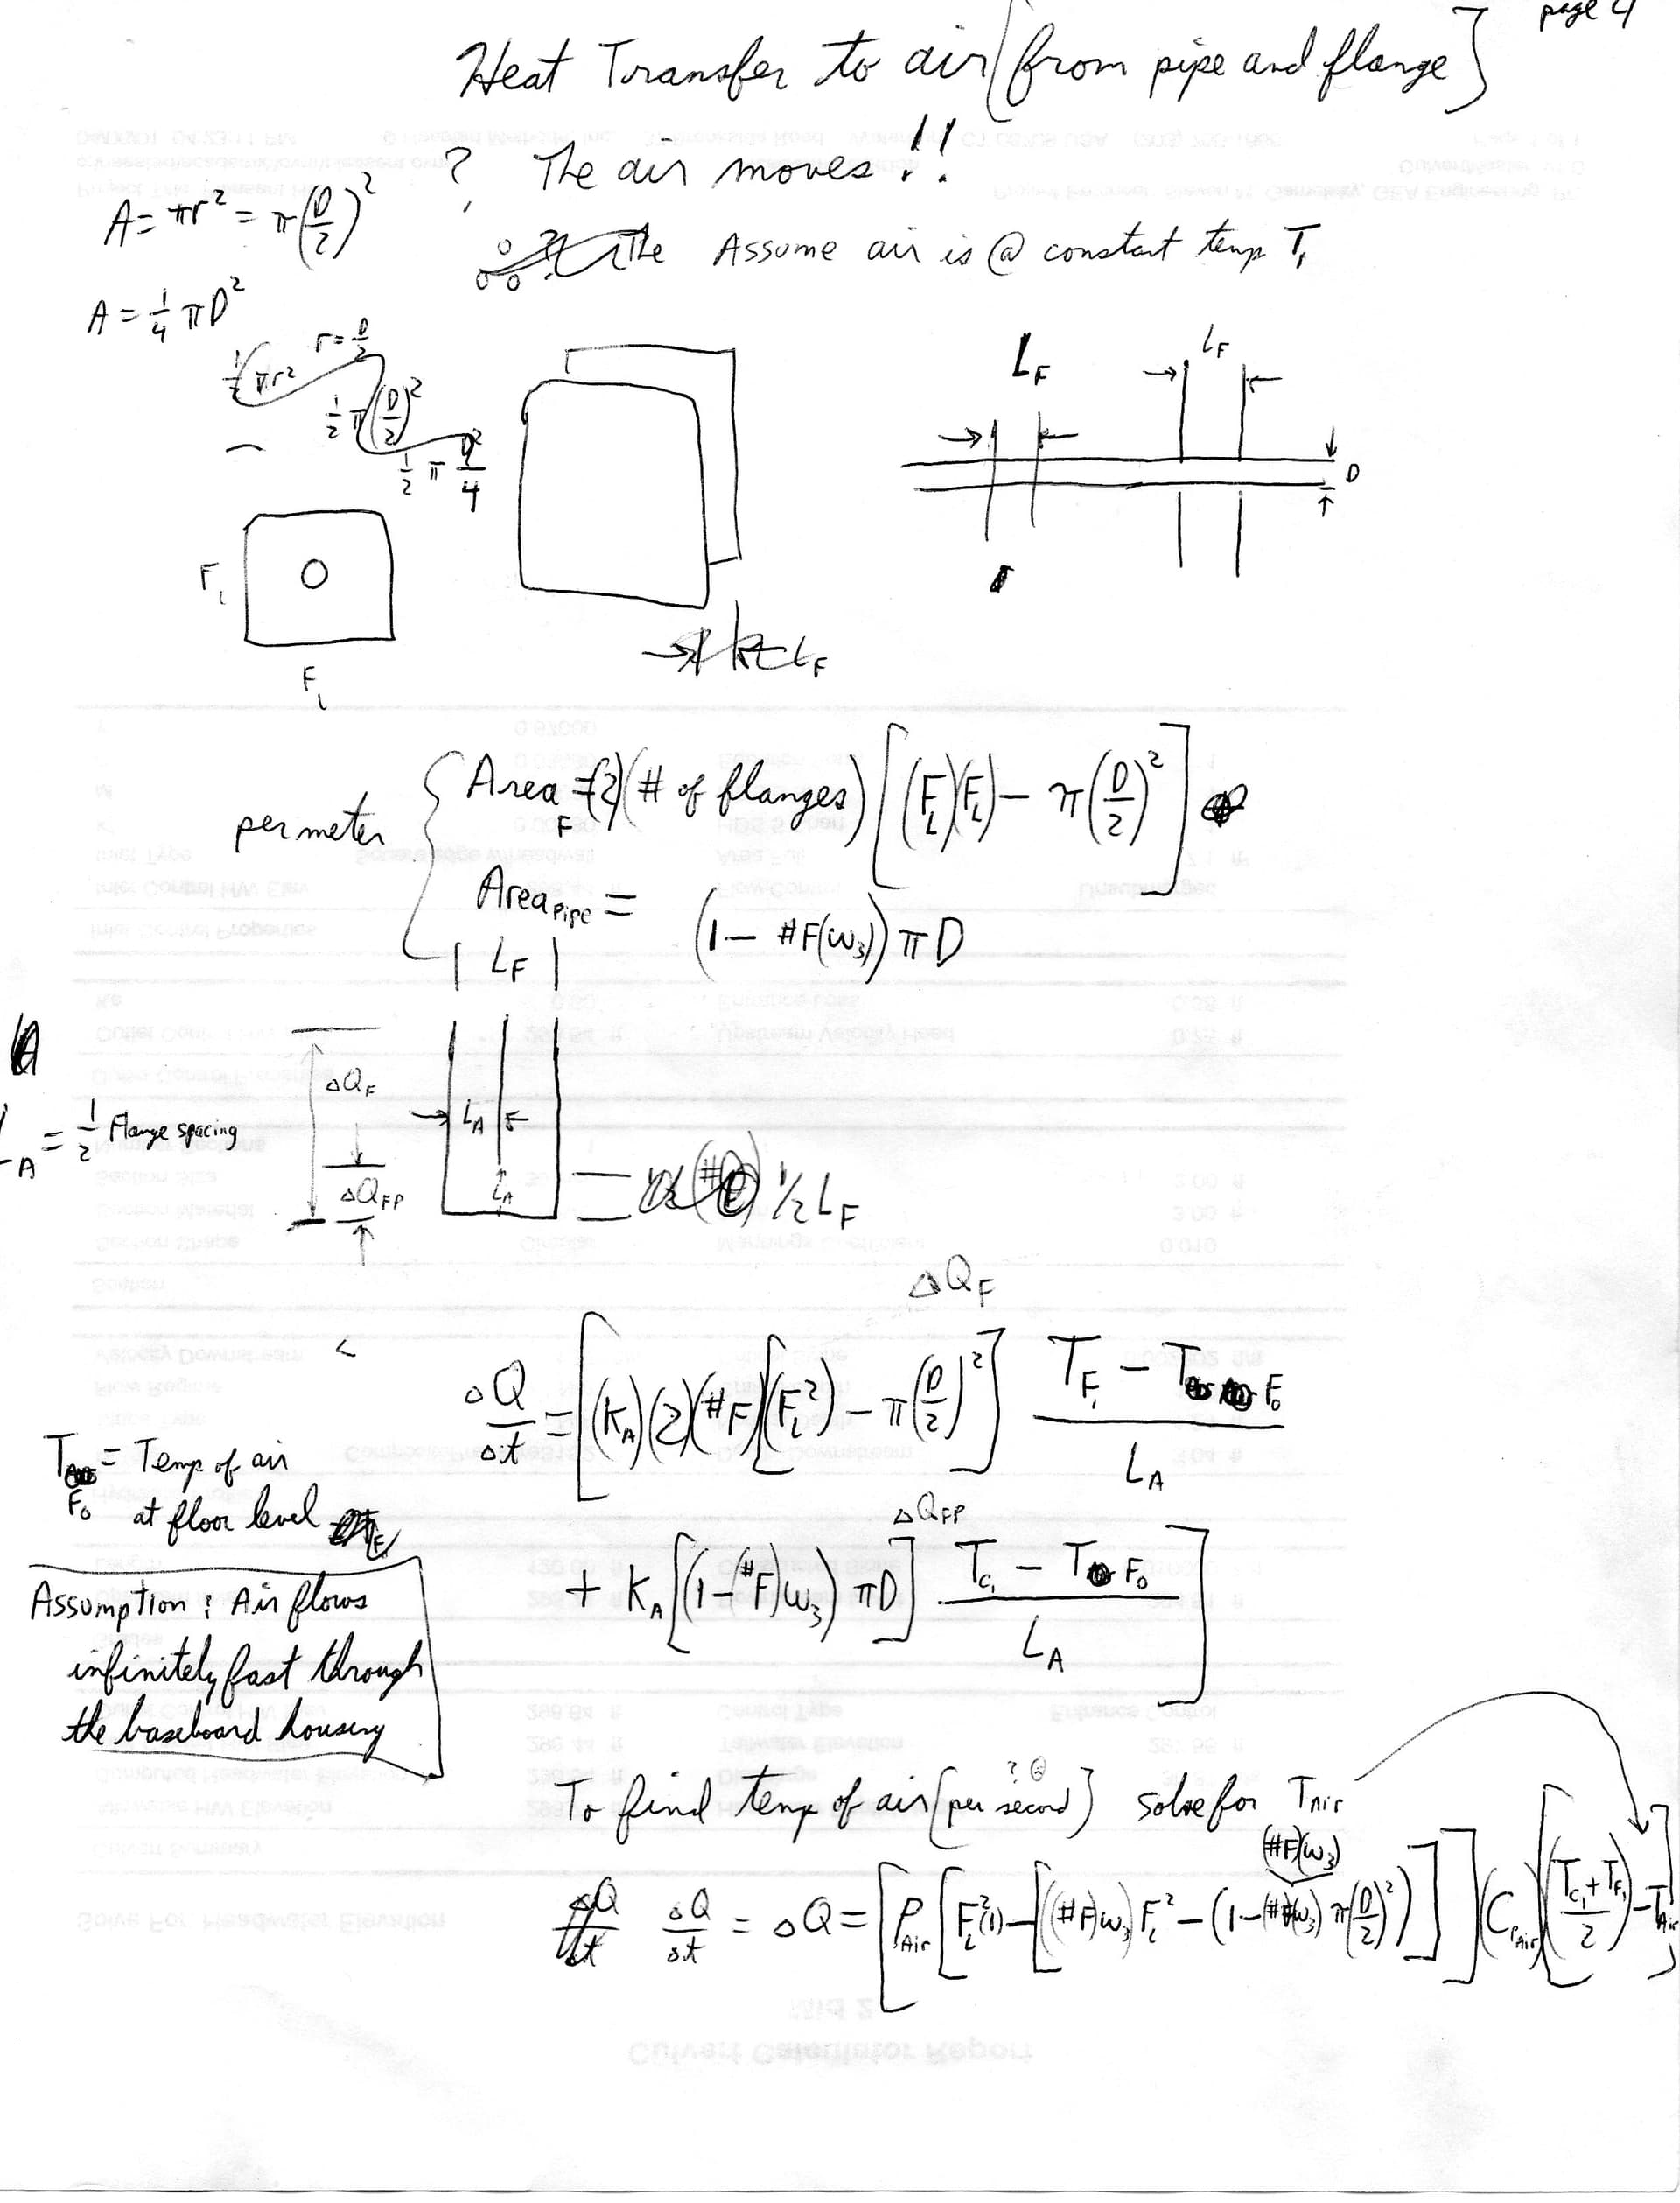 page 4
Heat Transfer to air [from pipe and flange]
? The air moves!!
A = πr² = π(D/2)²
Assume air is @ constant temp T₁
A = ¼ πD²
r = D/2
½ πr²
½ π(D/2)²
½ π D²/4
L_F
L_F
D
F_L
F_L
L_F
per meter
Area_F = (2)(# of flanges) [(F_L)(F_L) − π(D/2)²]
Area_pipe = (1 − #F(w₃)) πD
L_F
ΔQ_F
L_A
L_A = ½ Flange spacing
ΔQ_FP
L_A
½ L_F
ΔQ_F
ΔQ/Δt = [(K_A)(2)(#F)[(F_L²) − π(D/2)²] (T_F₁ − T_F₀)/L_A
T_F₀ = Temp of air
at floor level
ΔQ_FP
+ K_A [(1 − (#F)w₃) πD] (T_C₁ − T_F₀)/L_A]
Assumption: Air flows
infinitely fast through
the baseboard housing
? @
To find temp of air [per second] solve for T_Air
(#F)(w₃)
ΔQ/Δt = ΔQ = [ρ_Air [F_L²(1) − [((#F)w₃) F_L² − (1 − (#F)(w₃) π(D/2)²)]]] (C_P_Air) [((T_C₁ + T_F₁)/2) − T_Air]